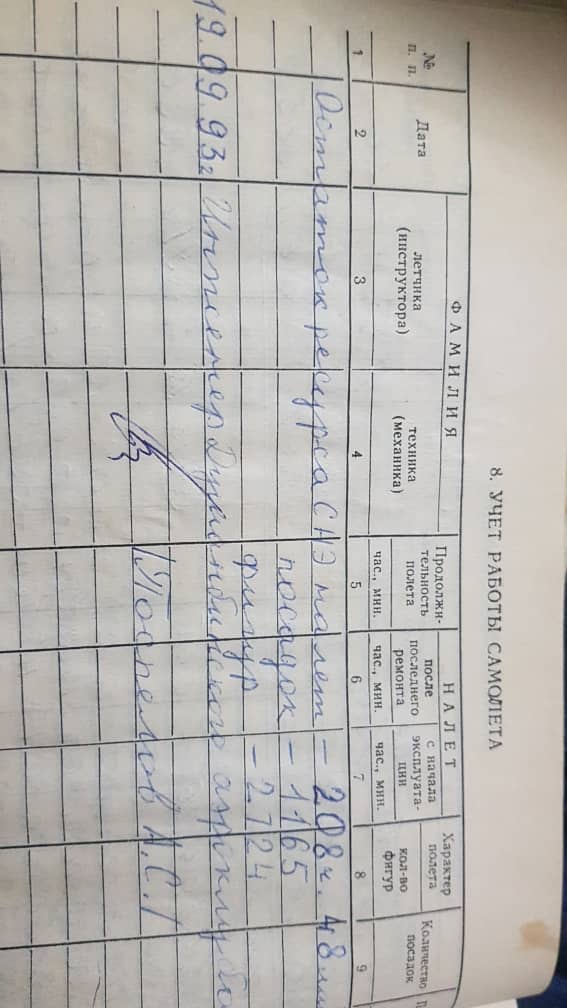 8. УЧЕТ РАБОТЫ САМОЛЕТА
№ п. п.
Дата
ФАМИЛИЯ
летчика (инструктора)
техника (механика)
Продолжи-
тельность
полета
час., мин.
НАЛЕТ
после
последнего
ремонта
час., мин.
с начала
эксплуата-
ции
час., мин.
Характер
полета
кол-во
фигур
Количество
посадок
1 2 3 4 5 6 7 8 9
Остаток ресурса СНЭ налет – 208ч. 48мин
посадок – 1165
фигур – 2724
19.09.93г Инженер аэроклуба
/Поспелов А.С./